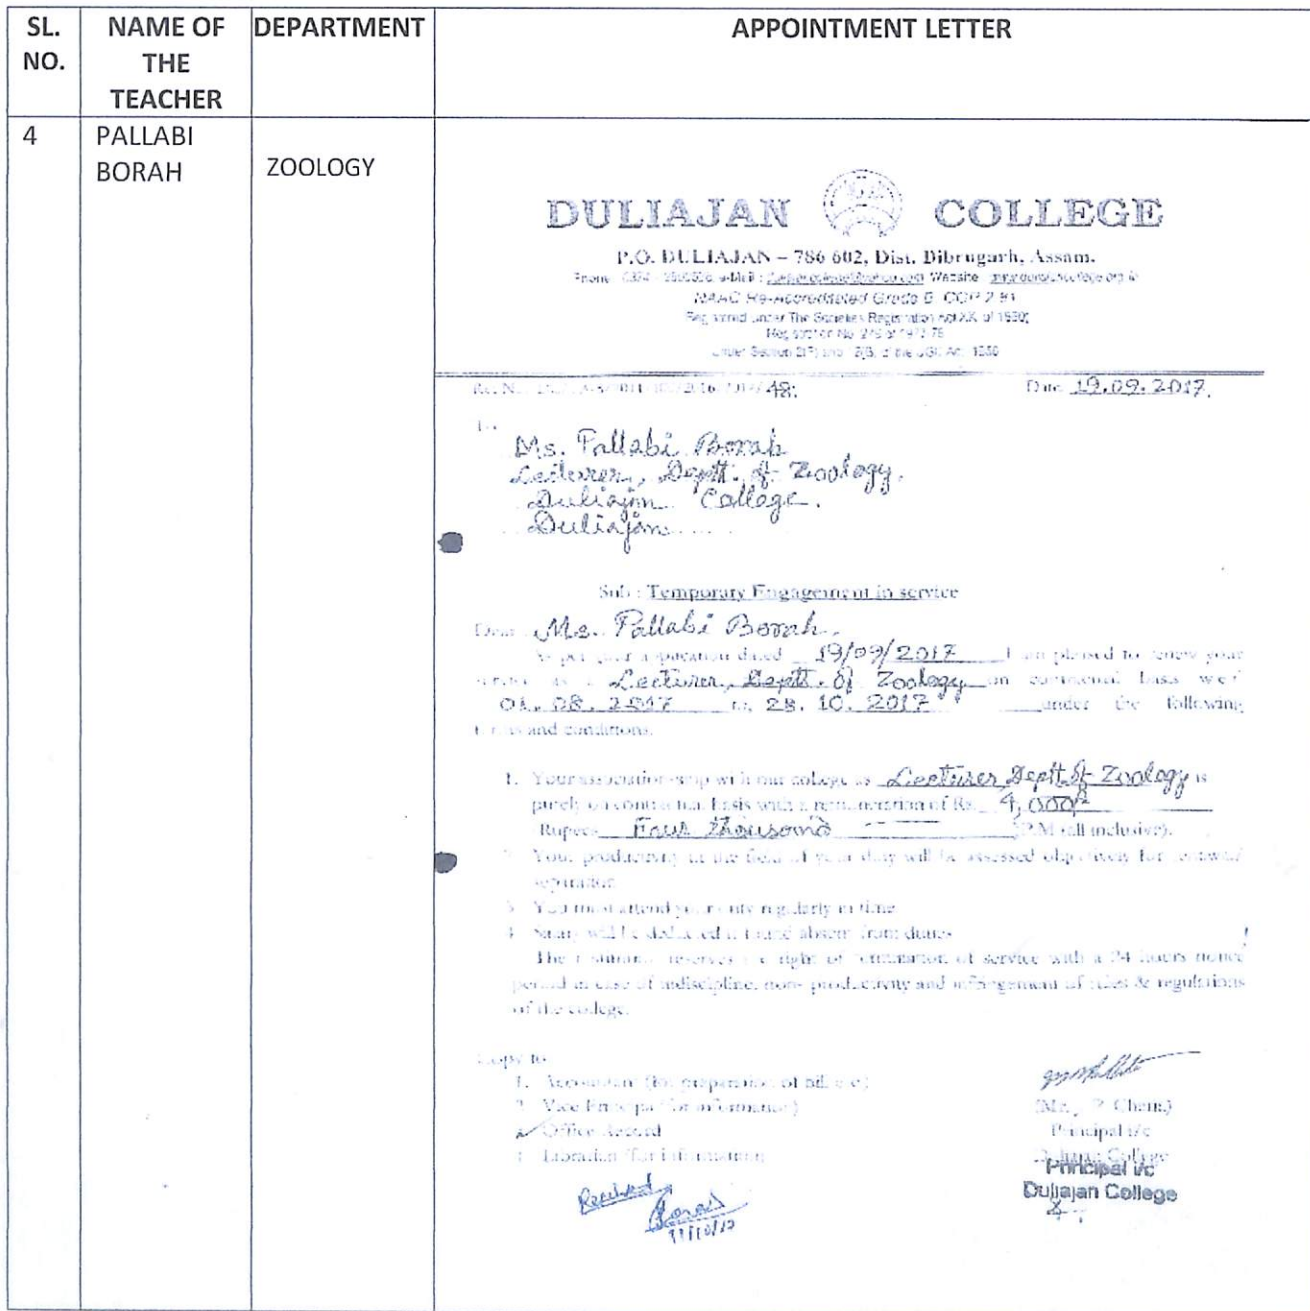 SL. NO.
NAME OF THE TEACHER
DEPARTMENT
APPOINTMENT LETTER
4
PALLABI BORAH
ZOOLOGY
DULIAJAN COLLEGE
P.O. DULIAJAN – 786 602, Dist. Dibrugarh, Assam.
NAAC Re-Accredited Grade B
Registered under The Societies Registration Act
48.
Date 19.09.2017.
Ms. Pallabi Borah
Lecturer, Deptt. of Zoology.
Duliajan College.
Duliajan
Sub : Temporary Engagement in service
Dear Ms. Pallabi Borah,
As per your application dated 19/09/2017 I am pleased to renew your
service as a Lecturer, Deptt. of Zoology on contractual basis w.e.f
01.08.2017 to 28.10.2017 under the following
terms and conditions.
1. Your association-ship with our college as Lecturer Deptt of Zoology is
purely on contractual basis with a remuneration of Rs. 4,000/-
Rupees Four Thousand P.M (all inclusive).
2. Your productivity in the field of your duty will be assessed objectively for renewal/
separation
3. You must attend your duty regularly in time
4. Salary will be deducted if found absent from duties
The reserves the right of termination of service with a 24 hours notice
period in case of indiscipline, non- productivity and infringement of rules & regulations
of the college.
Copy to
1. Accountant (for preparation of bill etc)
2. Vice Principal (for information)
Office Record
4. Librarian (for information)
Principal i/c
Duliajan College
Principal i/c
Duliajan College
Received